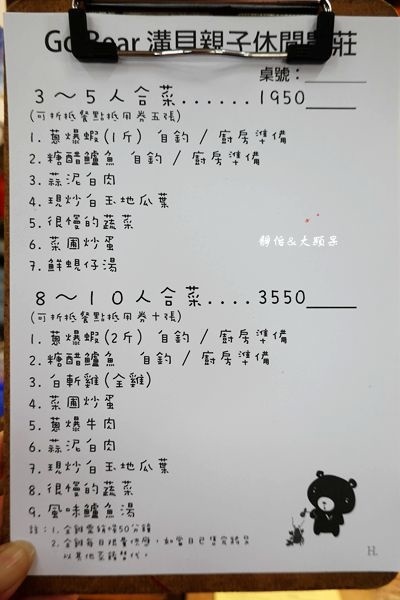 Go Bear 溝貝親子休閒農莊
桌號：
3～5人合菜......1950
(可折抵餐點抵用券五張)
1. 蔥爆蝦(1斤) 自釣 / 廚房準備
2. 糖醋鱸魚 自釣 / 廚房準備
3. 蒜泥白肉
4. 現炒白玉地瓜葉
5. 很慢的蔬菜
6. 菜圃炒蛋
7. 鮮蜆仔湯
靜怡&大顆呆
8～10人合菜....3550
(可折抵餐點抵用券十張)
1. 蔥爆蝦(2斤) 自釣 / 廚房準備
2. 糖醋鱸魚 自釣 / 廚房準備
3. 白斬雞(全雞)
4. 菜圃炒蛋
5. 蔥爆牛肉
6. 蒜泥白肉
7. 現炒白玉地瓜葉
8. 很慢的蔬菜
9. 風味鱸魚湯
註：1. 全雞需稍候50分鐘
2. 全雞每日限量供應，如當日已售完將另
以其他菜餚替代。
H.